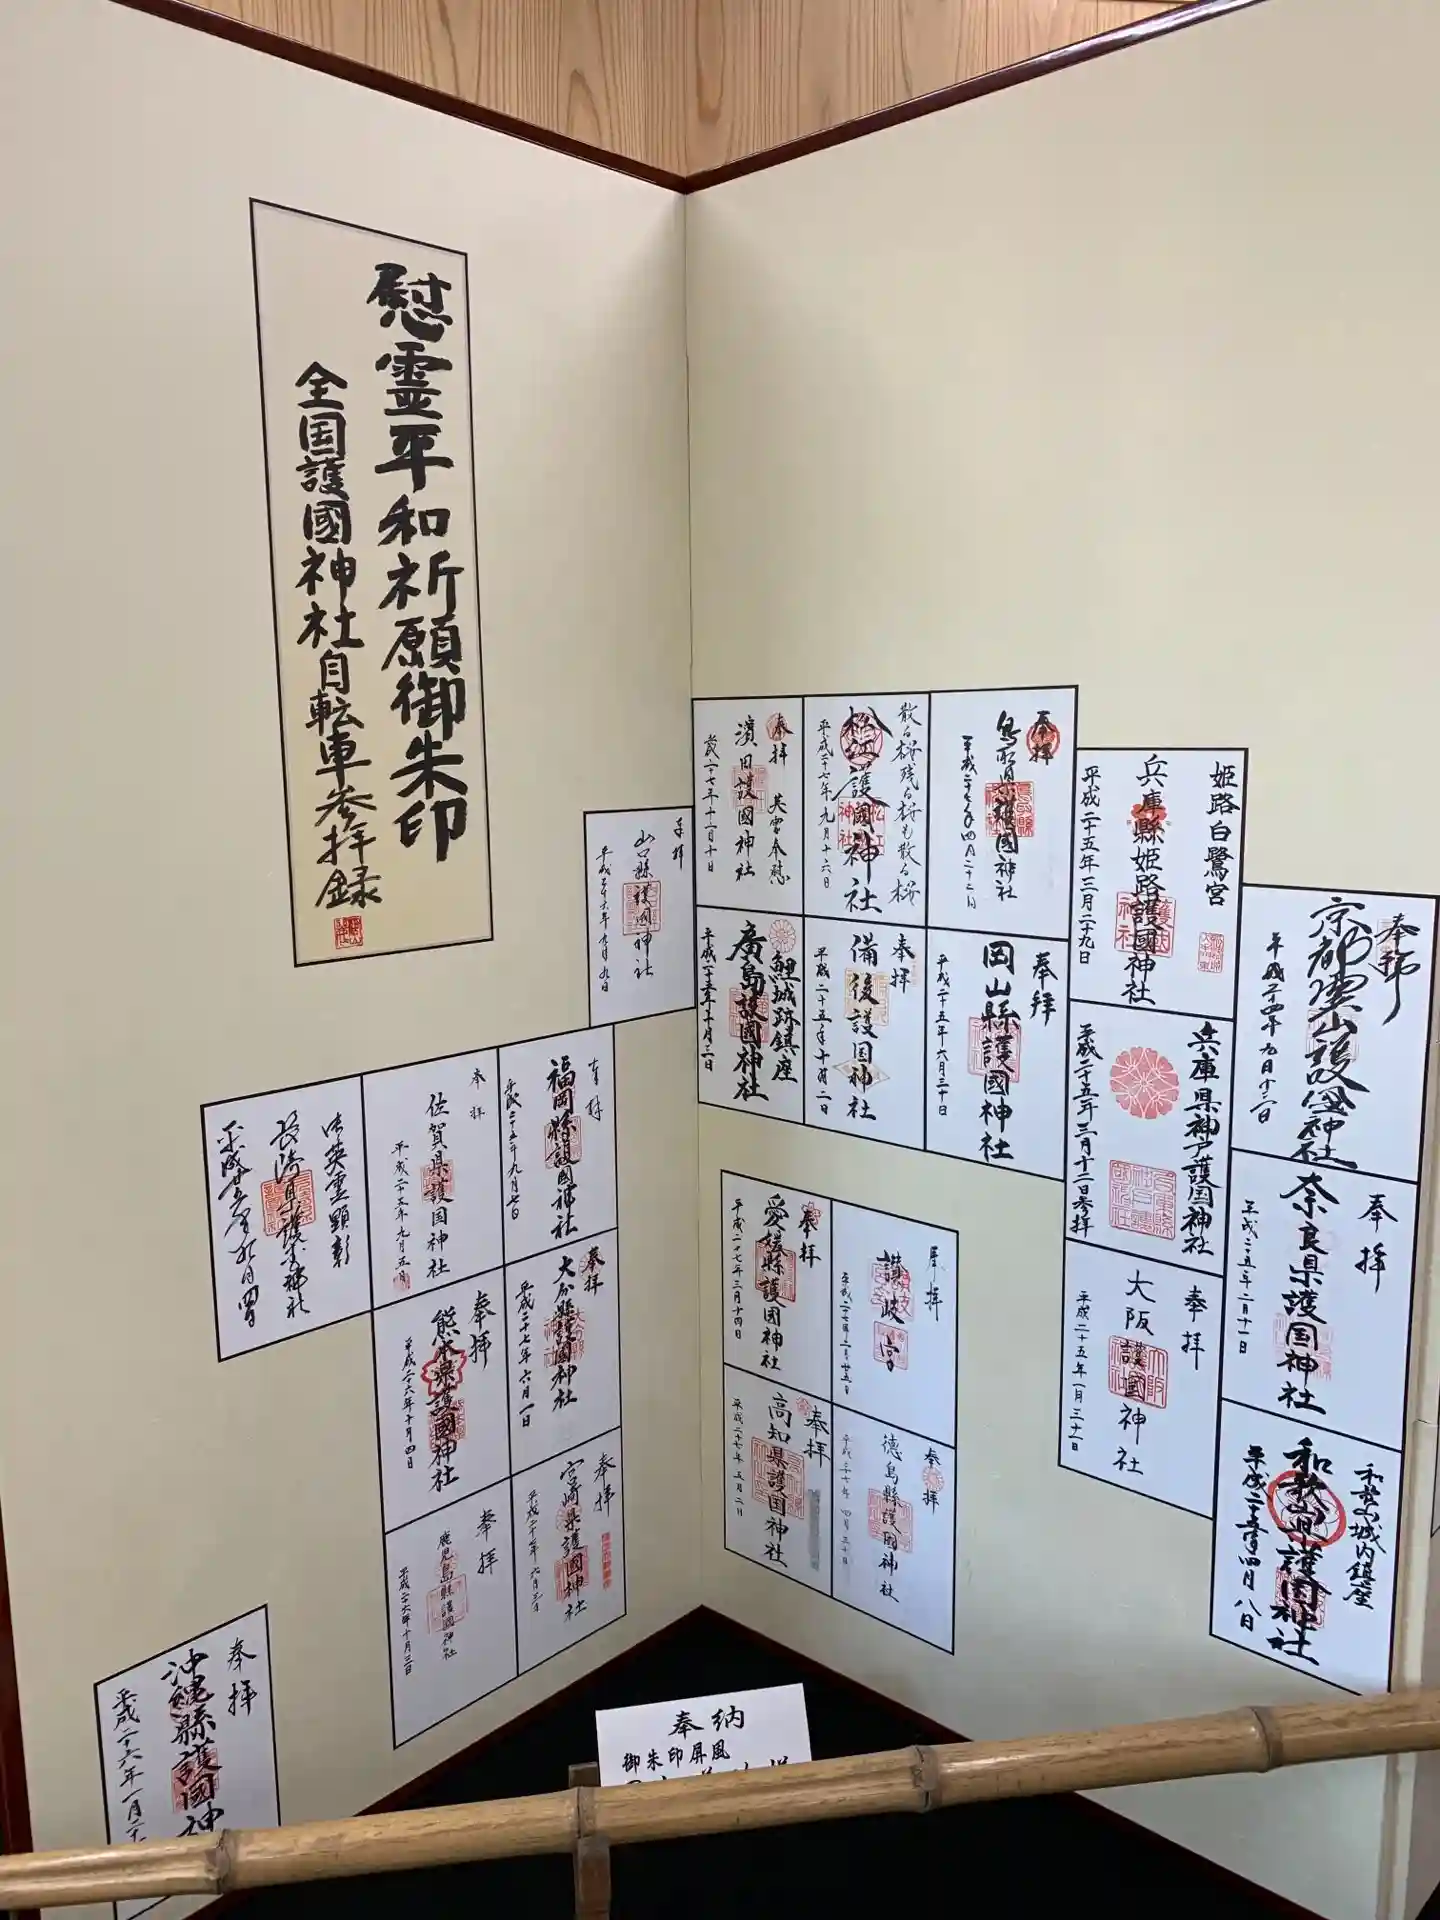 慰霊平和祈願御朱印
全国護國神社自転車参拝録
奉拝
京都霊山護国神社
平成二十四年九月十二日
奉拝
奈良県護国神社
平成二五年二月十一日
和歌山城内鎮座
和歌山県護国神社
平成二十五年四月八日
姫路白鷺宮
兵庫縣姫路護國神社
平成二十五年三月二十九日
兵庫県神戸護国神社
平成二十五年三月十二日参拝
奉拝
大阪護國神社
平成二十五年一月三十一日
奉拝
鳥取県護國神社
平成二十七年四月二十二日
散る桜残る桜も散る桜
松江護國神社
平成二十七年九月十六日
奉拝
英霊奉慰
濱田護國神社
奉拝
岡山縣護國神社
平成二十五年六月三十日
奉拝
備後護国神社
鯉城跡鎮座
廣島護國神社
奉拝
山口縣護国神社
平成二十六年九月九日
讃岐宮
奉拝
愛媛縣護國神社
平成二十七年三月十四日
奉拝
徳島縣護國神社
平成二十七年四月三十日
奉拝
高知県護国神社
平成二十七年五月二日
福岡縣護國神社
平成二十五年九月七日
奉拝
佐賀県護国神社
平成二十五年九月五日
御英霊顕彰
長崎県護国神社
奉拝
大分縣護國神社
平成二十七年六月一日
奉拝
熊本県護國神社
平成二十六年十月四日
奉拝
宮崎県護國神社
平成二十七年六月三日
奉拝
鹿児島縣護國神社
平成二十六年十月三日
奉拝
沖縄縣護國神
平成二十六年一月二十
奉納
御朱印屏風